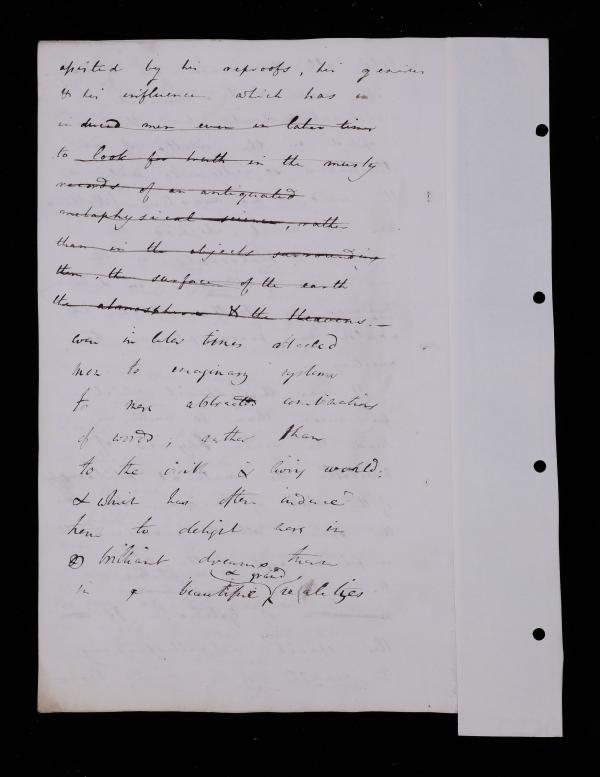 by his reproofs, his genius
& his influence which has in
induced men even in later times
to look for truth in the musty
records of an antiquated
metaphysical science, rather
than in the objects surrounding
them, the surface of the earth
the atmosphere & the Heavens.—
even in later times attached
men to imaginary systems
to mere abstracted combinations
of words, rather than
to the visible & living world.
& which has often induced
them to delight more in
brilliant dreams than
& grand
in beautiful realities